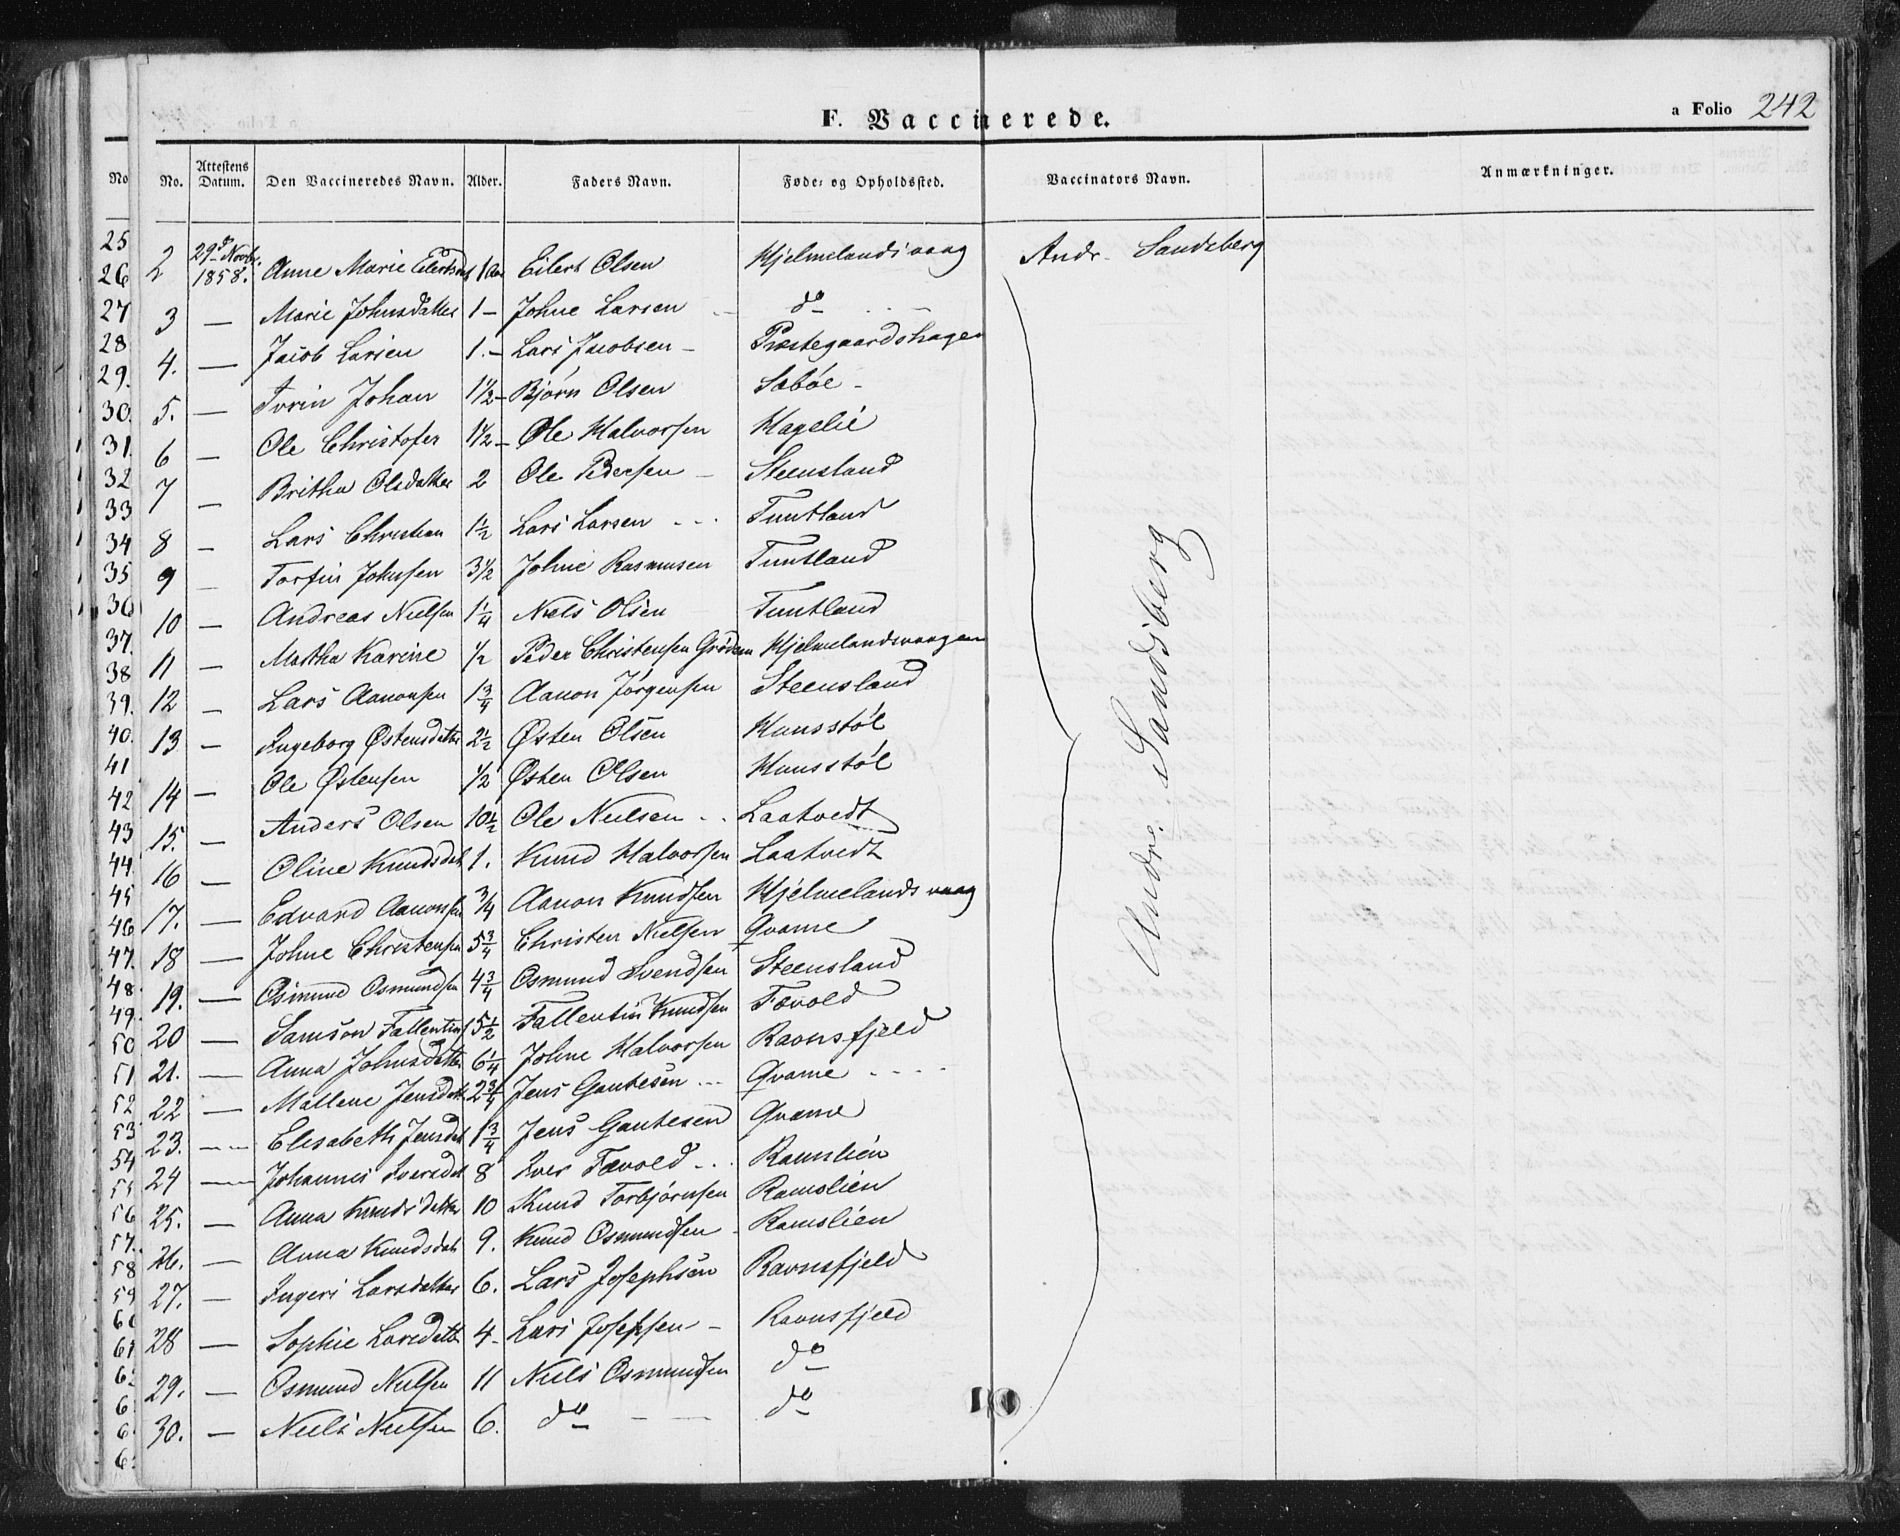 a Folio 242
F. Vaccinerede.
No. Attestens Datum. Den Vaccineredes Navn. Alder. Faders Navn. Føde- og Opholdssted. Vaccinators Navn. Anmærkninger.
2 29de Novbr. 1858. Anne Marie Eilertsd 1 Aar Eilert Olsen Hjelmelandsvaag Andr. Sandsberg
3 — Marie Johnsdatter 1 — Johne Larsen do
4. — Jacob Larsen 1. — Lars Jacobsen — Præstegaardshagen
5. — Johan 1 1/2 — Bjørn Olsen Sæbøe —
6 — Ole Christofer 1 1/2 — Ole Halvorsen Hagelie
7 — Britha Olsdatter 2 Ole Pedersen — Steensland
8 — Lars Christian 1 1/2 Lars Larsen Tuntland
9 — Torfin Johnsen 3 1/2 Johne Rasmusen Tuntland
10 — Andreas Nielsen 1 1/4 Niels Olsen Tuntland
11 — Martha Karine 1/2 Peder Christensen Grødem Hjelmelandsvaagen
12 — Lars Aanonsen 1 3/4 Aanon Jørgensen Steensland
13 — Ingeborg Østensdatter 2 1/2 Østen Olsen Hunsstøl
14 — Ole Østensen 1/2 Østen Olsen Hunsstøl
15. — Anders Olsen 10 1/2 Ole Nielsen Laatvedt
16 — Oline Knudsdat 1. Knud Halvorsen Laatvedt
17. — Edvard Aanonsen 3/4 Aanon Knudsen Hjelmelandsvaag
18 — Johne Christensen 5 3/4 Christen Nielsen Qvame
19. — Osmund Osmundsen 4 3/4 Osmund Svendsen Steensland
20 — Samson Fallentins 5 1/2 Fallentin Knudsen Fævold
21. — Anna Johnsdatter 6 1/4 Johne Halvorsen Ravnsfjeld
22 — Mallene Jensdat 2 3/4 Jens Gautesen Qvame
23. — Elisabeth Jensdat 1 3/4 Jens Gautesen Qvame
24 — Johannes Iversdat 8 Iver Fævold Ramslien
25. — Anna Knudsdatter 10 Knud Torbjørnsen Ramslien
26. — Anna Knudsdat 9. Knud Osmundsen Ramslien
27. — Ingeri Larsdatter 6. Lars Josephsen Ravnsfjeld
28 — Sophie Larsdatt 4 — Lars Josephsen — Ravnsfjeld
29. — Osmund Nielsen 11 Niels Osmundsen do
30. — Niels Nielsen 6. do do
Andr. Sandsberg
25
26
27
28
29.
30.
31.
32
33
34
35
36
37.
38
39.
40.
41
42
43
44
45
46
47.
48
49.
50
51
52
53
54
55
56
57.
58
59
60
61